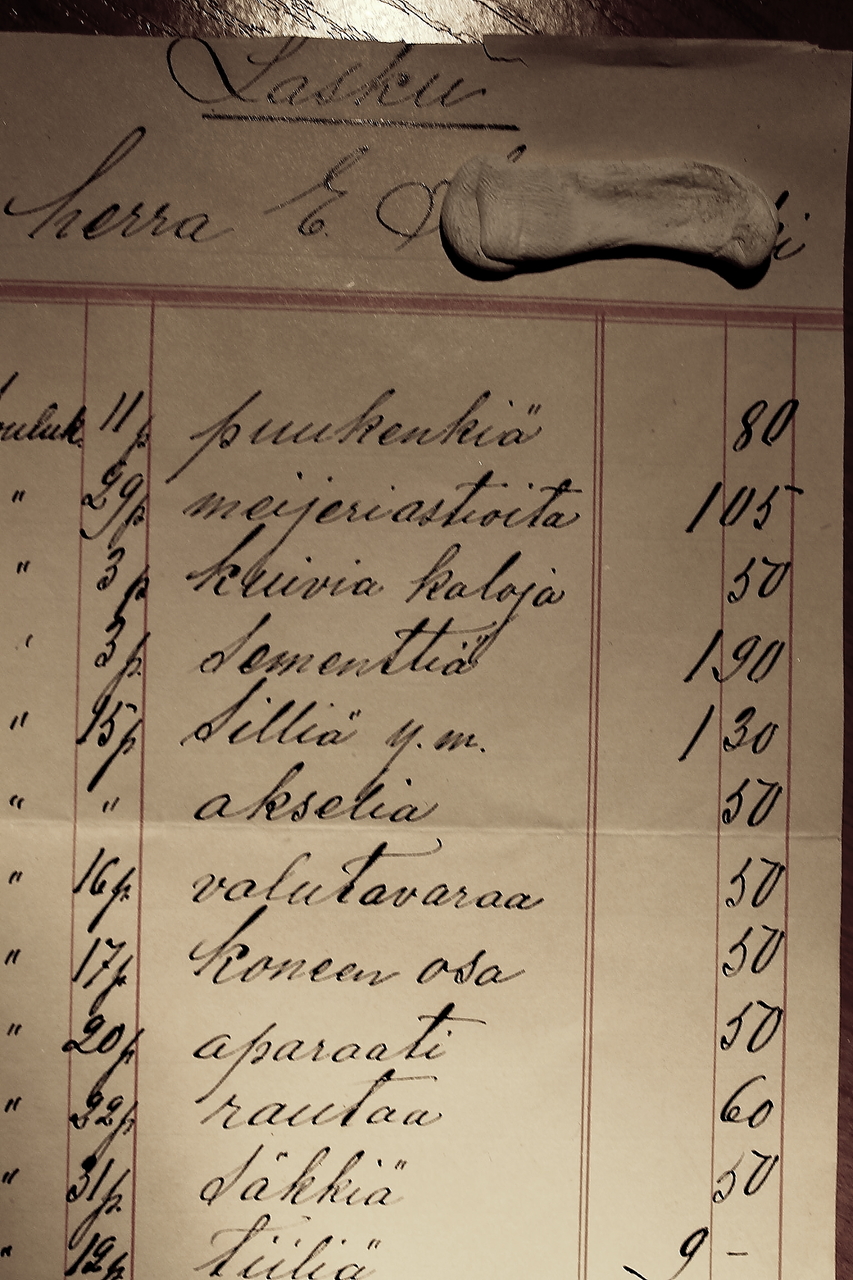 Lasku
herra E.
11 p puukenkiä 80
" 29 p meijeriastioita 1 05
" 3 p kuivia kaloja 50
" 3 p. Sementtiä 1 90
" 15 p Silliä y.m. 1 30
" " akselia 50
" 16 p. valutavaraa 50
" 17 p. koneen osa 50
" 20 p. aparaati 50
" 22 p. rautaa 60
" 31 p. Säkkiä 50
" 12 p. Tiiliä 9 -